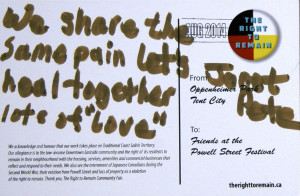 We share the
same pain Let's
heal together
lots of "Love"
AUG 2014
THE
RIGHT TO
REMAIN
From
Oppenheimer Park
Tent City
Janet
Pete
To:
Friends at the
Powell Street Festival
We acknowledge and honour that our work takes place on Traditional Coast Salish Territory.
Our allegiance is to the low-income Downtown Eastside community and the right of its residents to
remain in their neighbourhood with the housing, services, amenities and commercial businesses that
reflect and respond to their needs. We also see the internment of Japanese Canadians during the
Second World War, their eviction from Powell Street and loss of property as a violation
of the right to remain. Thank you, The Right to Remain Community Fair.
therighttoremain.ca